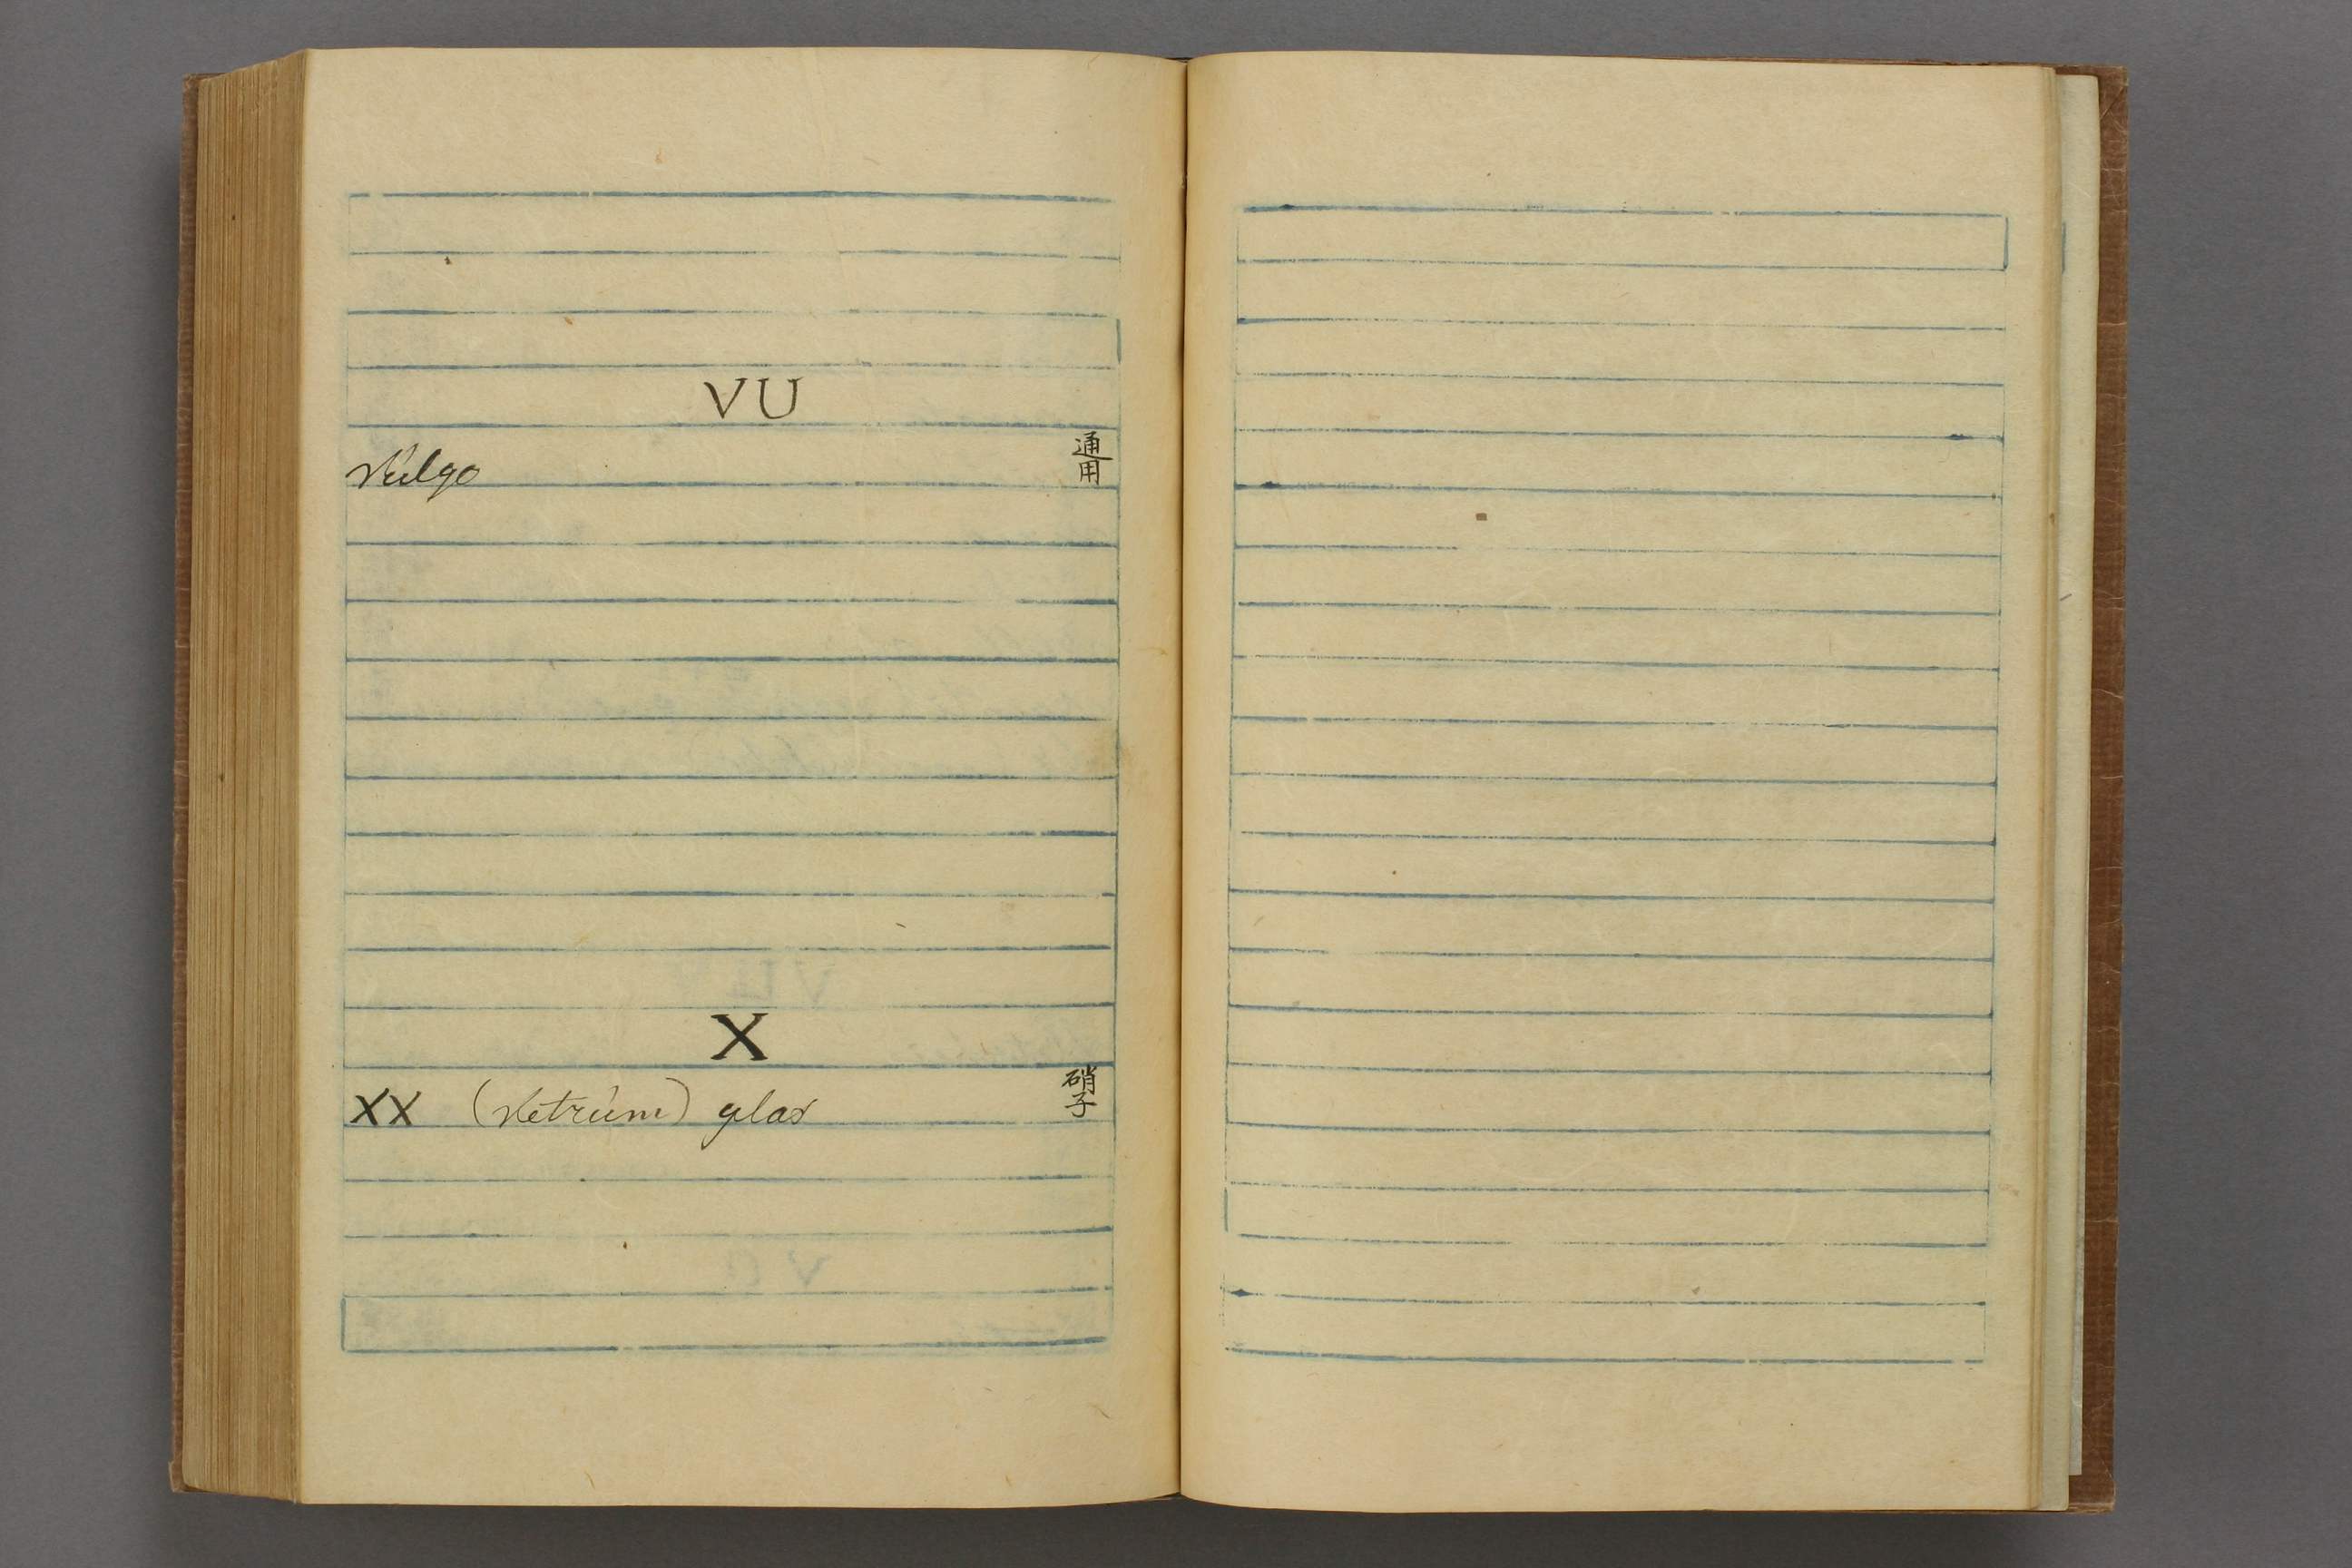 VU
Vulgo 通用
X
XX (Vetrum) glas 硝子